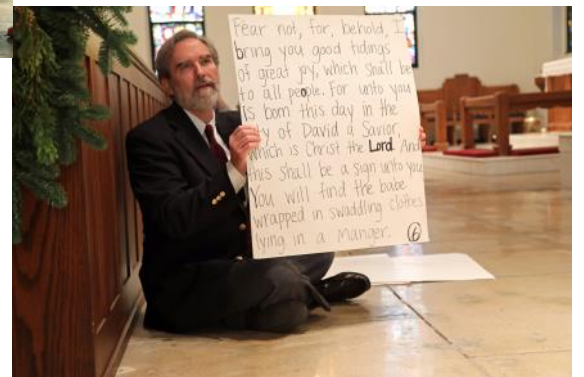 Fear not, for, behold, I
bring you good tidings
of great joy, which shall be
to all people. For unto you
is born this day in the
City of David a Savior,
which is Christ the Lord. And
this shall be a sign unto you
You will find the babe
wrapped in swaddling clothes
lying in a manger. 6